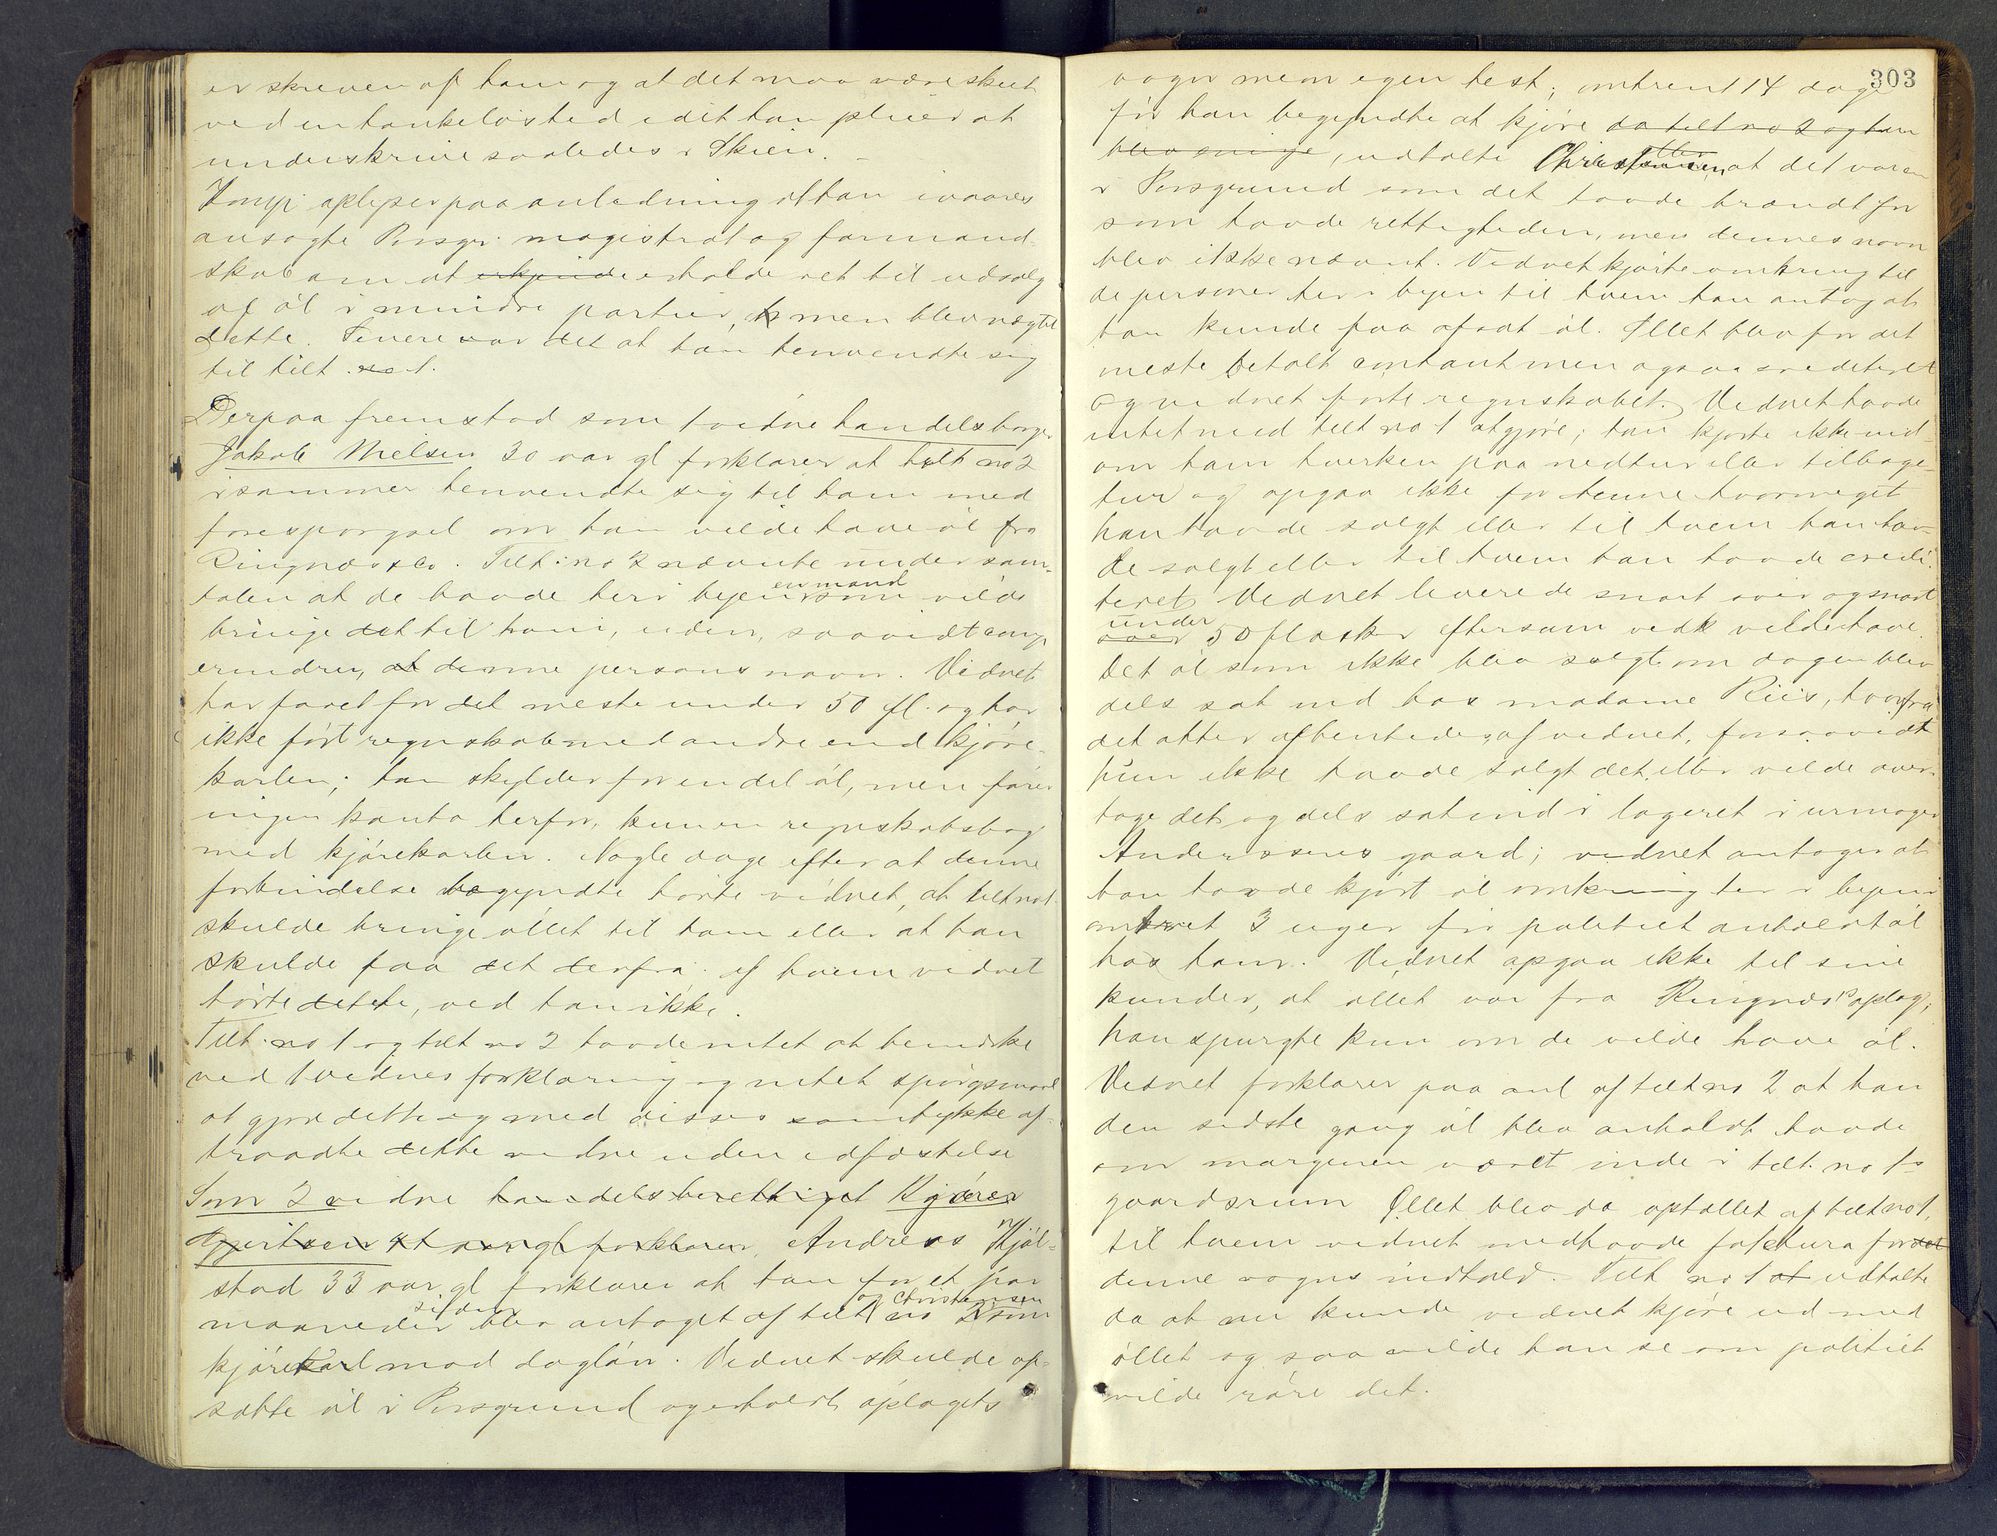 er skreven af ham og at det maa være skeet
ved en tankeløshed idet han pleier at
underskrive saaledes i Skien. —
Komp. oplyser paa anledning at han ivaares
ansøgte Porsgr. magistrat og formand-
skab om at erholde ret til udsalg
af øl i mindre partier, men blev nægtet
dette. Senere var det at han henvendte sig
til tilt. no 1.
Derpaa fremstod som 1 vidne handelsborger
Jakob Nielsen 30 aar gl forklarer at tilt no 2
i sommer henvendte sig til ham med
forespørgsel om han vilde have øl fra
Ringnæs & Co. Tilt. no 2 nævnte under sam-
talen at de havde her i byen en mand som vilde
bringe det til ham, uden, saavidt comp.
erindrer, at denne persons navn. Vidnet
har faaet for det meste under 50 fl. og har
ikke ført regnskab med andre end kjøre-
karlen; han skylder for en del øl, men fører
ingen konto herfor, kun en regnskabsbog
med kjørekarlen. Nogle dage efter at denne
forbindelse begyndte hørte vidnet, at tilt no 1
skulde bringe øllet til ham eller at han
skulde faa det derfra. af hvem vidnet
hørte dette, ved han ikke.
Tilt. no 1 og tilt no 2 havde intet at bemærke
ved 1 vidnes forklaring og intet spørgsmaal
at gjøre dette og med disses samtykke af-
traadte dette vidne uden edfæstelse
Som 2 vidne handelsberettiget Kjøres
Gjeritsen 41 aar gl forklarer, Andreas Hjøl-
stad 33 aar gl forklarer at han for et par
maaneder siden blev antaget af tilt no 2 og Christensen som
kjørekarl mod dagløn. Vidnet skulde op-
sætte øl i Porsgrund og erholdt oplagets
303
vogn men egen hest; omtrent 14 dage
før han begyndte at kjøre da tilt no 2 og han
blev enige, udtalte Christensen at det var en
i Porsgrund som det havde brændt for
som havde rettigheden, men dennes navn
blev ikke nævnt. Vidnet kjørte omkring til
de personer her i byen til hvem han antog at
han kunde faa afsat øl. Øllet blev for det
meste betalt contant men ogsaa crediteret
og vidnet førte regnskabet. Vidnet havde
intet med tilt no 1 at gjøre; han kjørte ikke ind-
om ham hverken paa nedtur eller tilbage-
tur og opgav ikke for denne hvormeget
han havde solgt eller til hvem han hav-
de solgt eller til hvem han havde credi-
teret. Vidnet leverede snart over og snart
under 50 flasker eftersom vedk vilde have.
Det øl som ikke blev solgt om dagen blev
dels sat ind hos madame Riis, hvorfra
det atter afhentedes af vidnet, forsaavidt
hun ikke havde solgt det eller vilde over-
tage det og dels sat ind i lageret i urmager
Anderssens gaard; vidnet antager at
han havde kjørt øl omkring her i byen i
omtret 3 uger før politiet anholdt øl
hos ham. Vidnet opgav ikke til sine
kunder, at øllet var fra Ringnæs oplag;
han spurgte kun om de vilde have øl.
Vidnet forklarer paa anl af tilt no 2 at han
den sidste gang øl blev anholdt havde
om morgenen været inde i tilt. no 1s
gaardsrum Øllet blev da optællet af tilt no 1,
til hvem vidnet medhavde faktura for
denne vogns indhold. Tilt no 1 udtalte
da at nu kunde vidnet kjøre ud med
øllet og saa vilde han se om politiet
vilde røre det.